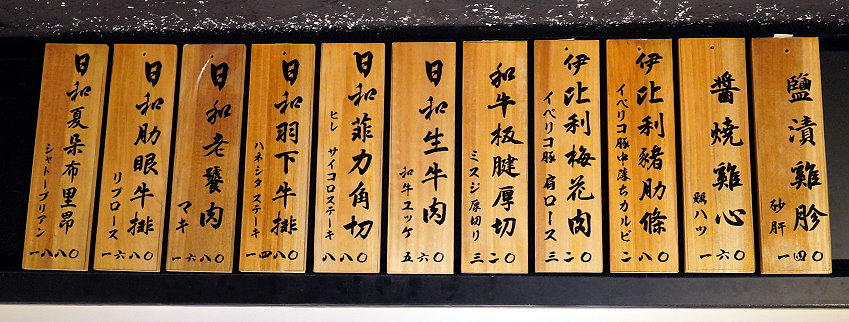 鹽漬雞胗
砂肝
一四〇
醬燒雞心
鶏ハツ
一六〇
伊比利豬肋條
イベリコ豚中落ちカルビ
二八〇
伊比利梅花肉
イベリコ豚 肩ロース
三二〇
和牛板腱厚切
ミスジ厚切り
三二〇
日和生牛肉
和牛ユッケ
五六〇
日和菲力角切
ヒレ サイコロステーキ
八八〇
日和羽下牛排
ハネシタステーキ
一四八〇
日和老饕肉
マキ
一六八〇
日和肋眼牛排
リブロース
一六八〇
日和夏朵布里昂
シャトーブリアン
一八八〇